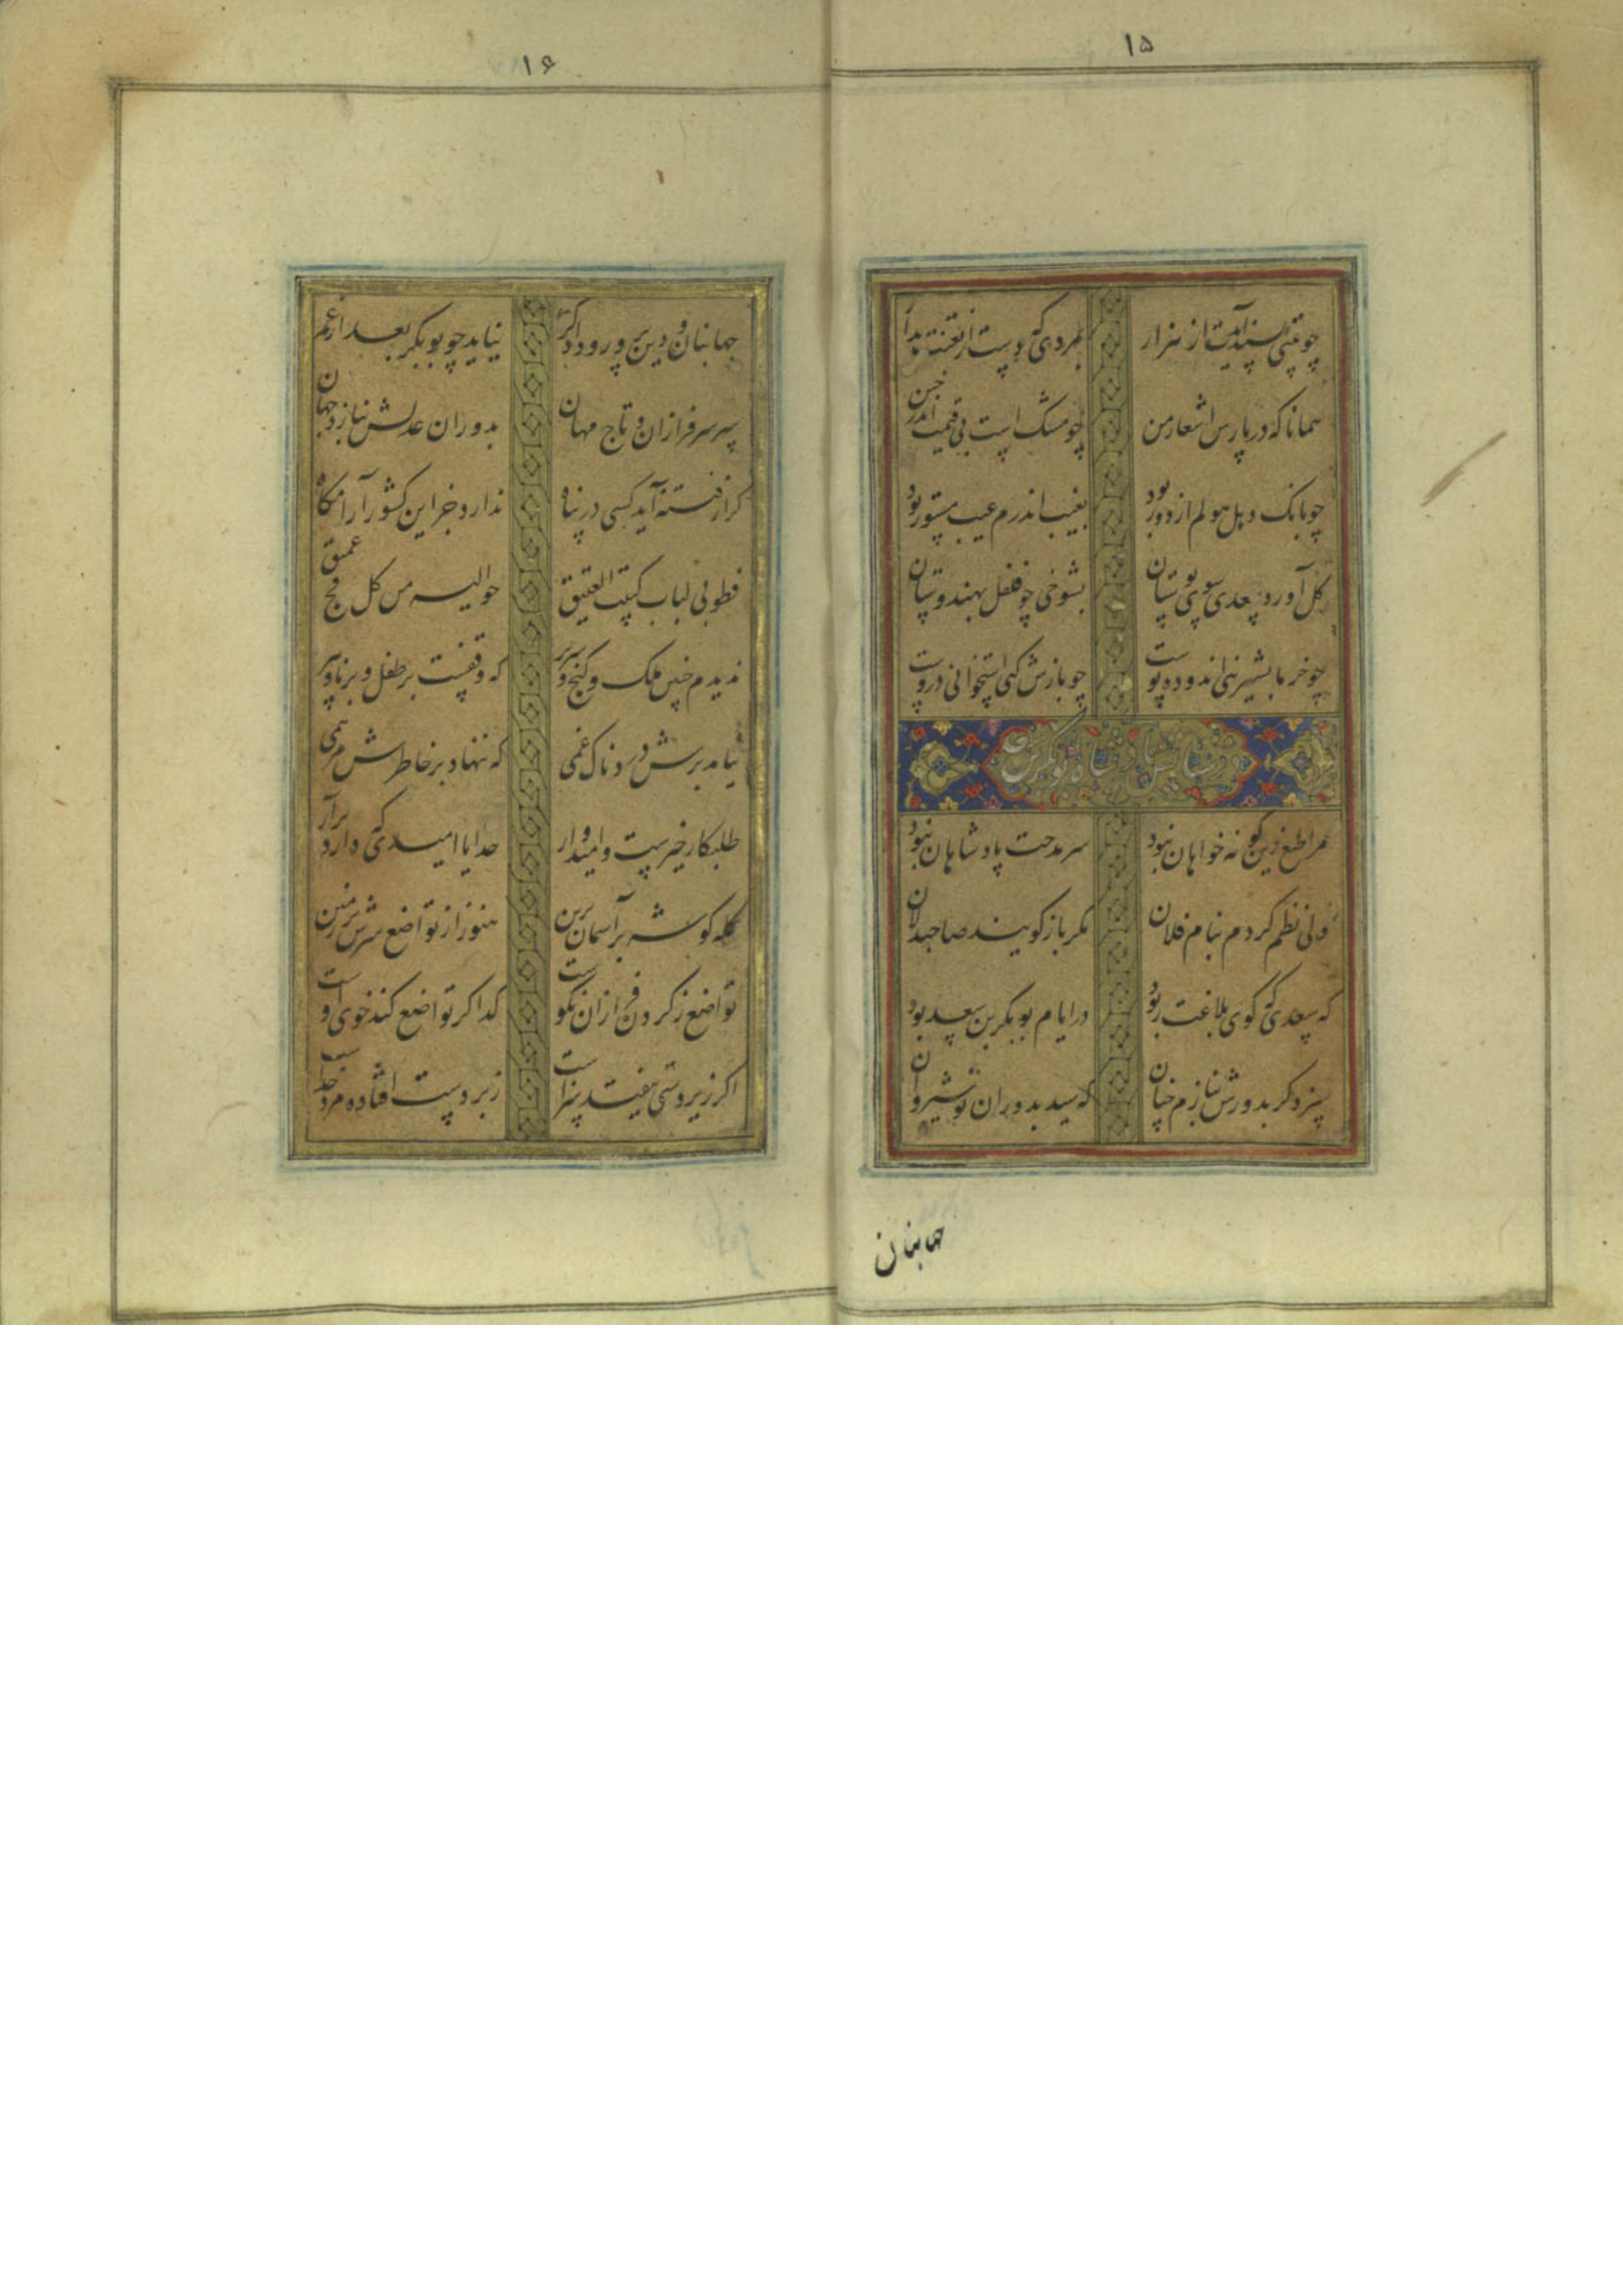 ۱۵
چو بیتی پسند آیدت از هزار
بمردی که دست از تعنت بدار
همانا که در پارس اشعار من
چو مشک است بی قیمت اندر ختن
چو بانک دهل هولم از دور بود
بغیب اندرم عیب مستور بود
کل آورد سعدی سوی بوستان
بشوخی چو فلفل بهندوستان
چو خرما بشیرینی اندوده پوست
چو بازش کنی استخوانی دروست
در ستایش پادشاه بوبکر بن سعد
مرا طبع زین کونه خواهان نبود
سر مدحت پادشاهان نبود
ولی نظم کردم بنام فلان
مکر باز کویند صاحبدلان
که سعدی که کوی بلاغت ربود
در ایام بوبکر بن سعد بود
سزد کر بدورش نبازم چنان
که سید بدوران نوشیروان
جهانبان
۱۶
جهانبان و دین پرور و دادکر
نیاید چو بوبکر بعد از عمر
سر سرفرازان و تاج مهان
بدوران عدلش بناز د جهان
کر از فتنه آید کسی در پناه
ندارد جز این کشور آرامکاه
فطوبی لباب کبیت العتیق
حوالیه من کل فج عمیق
ندیدم چنین ملک و کنج و سریر
که وقفست بر طفل و برنا و پیر
نیامد برش دردناک غمی
که ننهاد بر خاطرش مرهمی
طلبکار خیرست و امیدوار
خدایا امیدی که دارد برآر
کله کوشه بر آسمان برین
هنوز از تواضع سرش بر زمین
تواضع ز کردن فرازان نکوست
کدا کر تواضع کند خوی اوست
اکر زیردستی بیفتد سزاست
زبردست افتاده مرد خداست